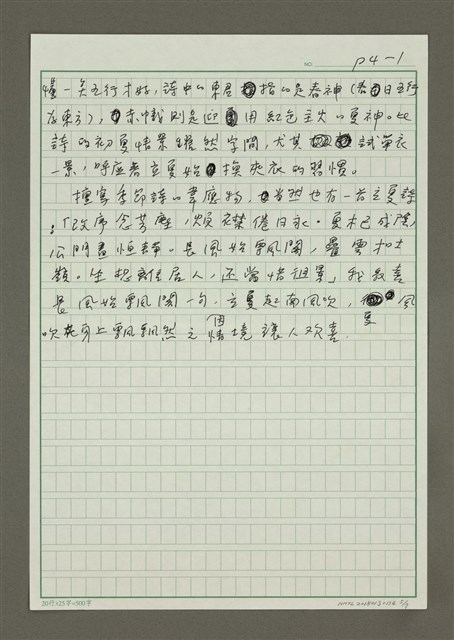 NO. P4-1
懂一矣五行才好,詩中の東君指の是春神(春日五行
在東方),赤幟則是迎用紅色主火の夏神。此
詩の初夏情景躍然字間,尤其試單衣
一景,呼應著立夏始換夾衣的習慣。
擅寫季節詩の韋應物,當然也有一首立夏詩
:「改序念芳塵,煩襟倦日永。夏木已成陰,
公門晝恒靜。長風始飄閣,疊雲才吐
嶺。坐想離居人,還當惜徂景」我最喜
長風始飄閣一句,立夏起南風吹,夏風
吹在身上飄飄然之情境讓人欢喜.
20行×25字=500字